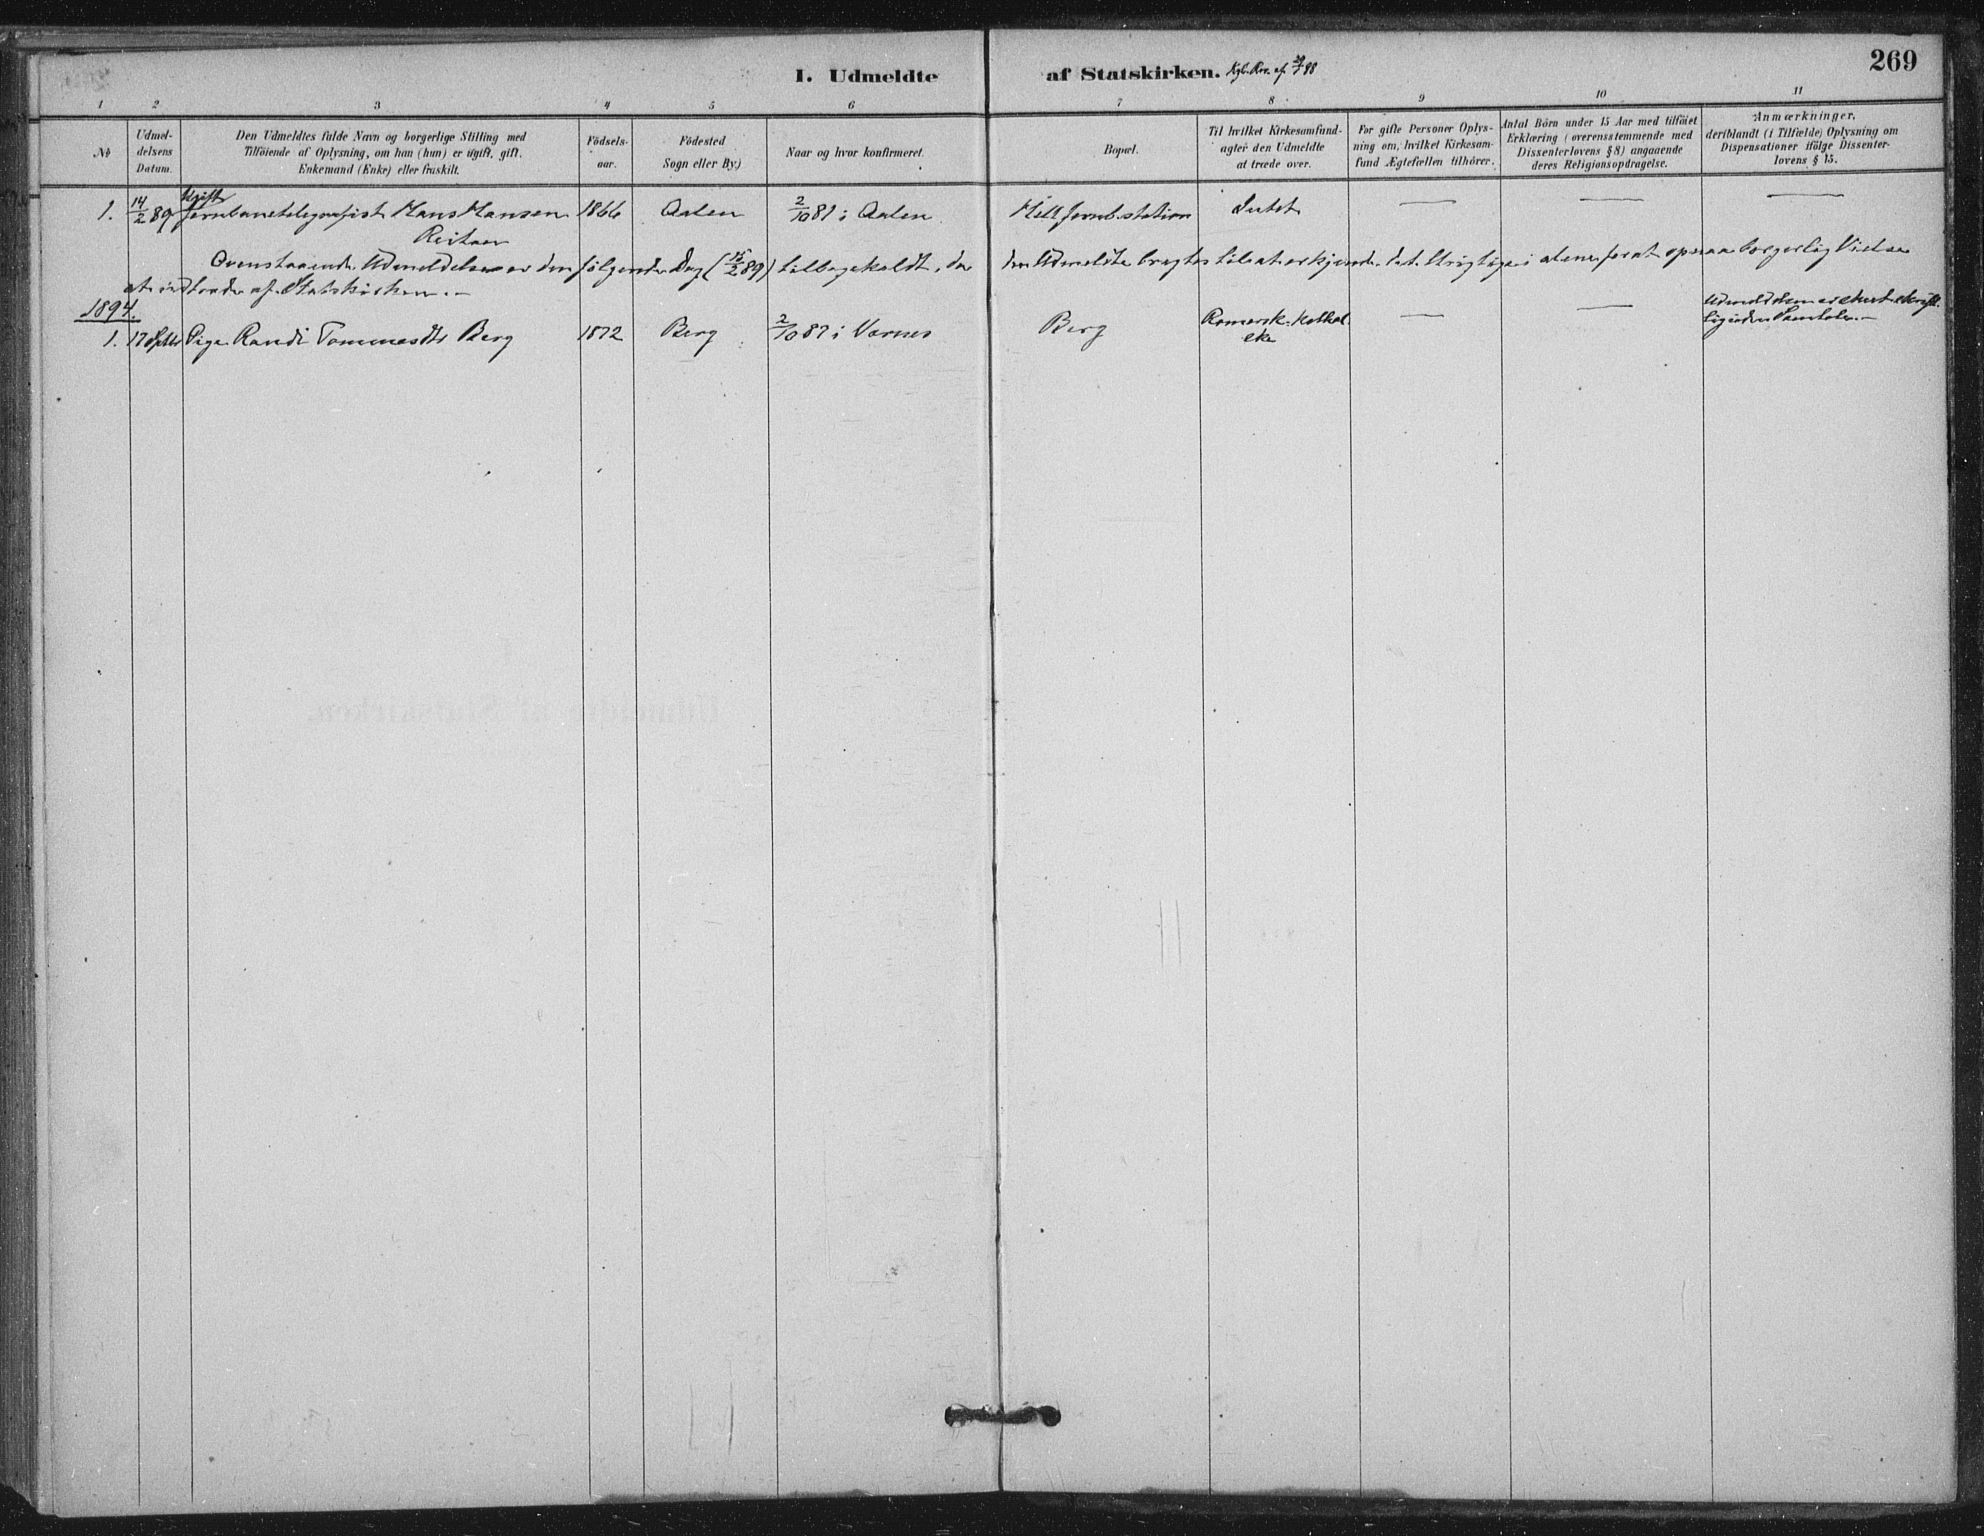 269
I. Udmeldte af Statskirken. Kgl. Res. af
1 2 3 4 5 6 7 8 9 10 11
№
Udmel-
delsens
Datum.
Den Udmeldtes fulde Navn og borgerlige Stilling med
Tilføiende af Oplysning, om han (hun) er ugift, gift,
Enkemand (Enke) eller fraskilt.
Födsels-
aar.
Födested
Sogn eller By.)
Naar og hvor konfirmeret.
Bopæl.
Til hvilket Kirkesamfund-
agter den Udmeldte
at træde over.
For gifte Personer Oplys-
ning om, hvilket Kirkesam-
fund Ægtefællen tilhører.
Antal Börn under 15 Aar med tilföiet
Erklæring (overensstemmende med
Dissenterlovens § 8) angaaende
deres Religionsopdragelse.
Anmærkninger,
deriblandt (i Tilfælde) Oplysning om
Dispensationer ifölge Dissenter-
lovens § 15.
Ugift
1. 14/2 89 Jernbanetelegrafist Hans Hansen 1866 Aalen 2/10 81 i Aalen. Hell Jernb.station Intet — — —
Reitan
Ovenstaaende Udmeldelse er den følgende Dag (15/2 89) tilbagekaldt, da den Udmeldte bragtes til at erkjende det Urigtige i alene for at opnaa borgerlig Vielse
at udtræde af Statskirken.—
1894.
1. 17 Septbr Pige Randi Tommesdtr Berg 1872 Berg 2/10 87 i Værnes Berg Romersk-Kathol- — —
ske
Udmeldelsen er skriftlig
Samtale.—